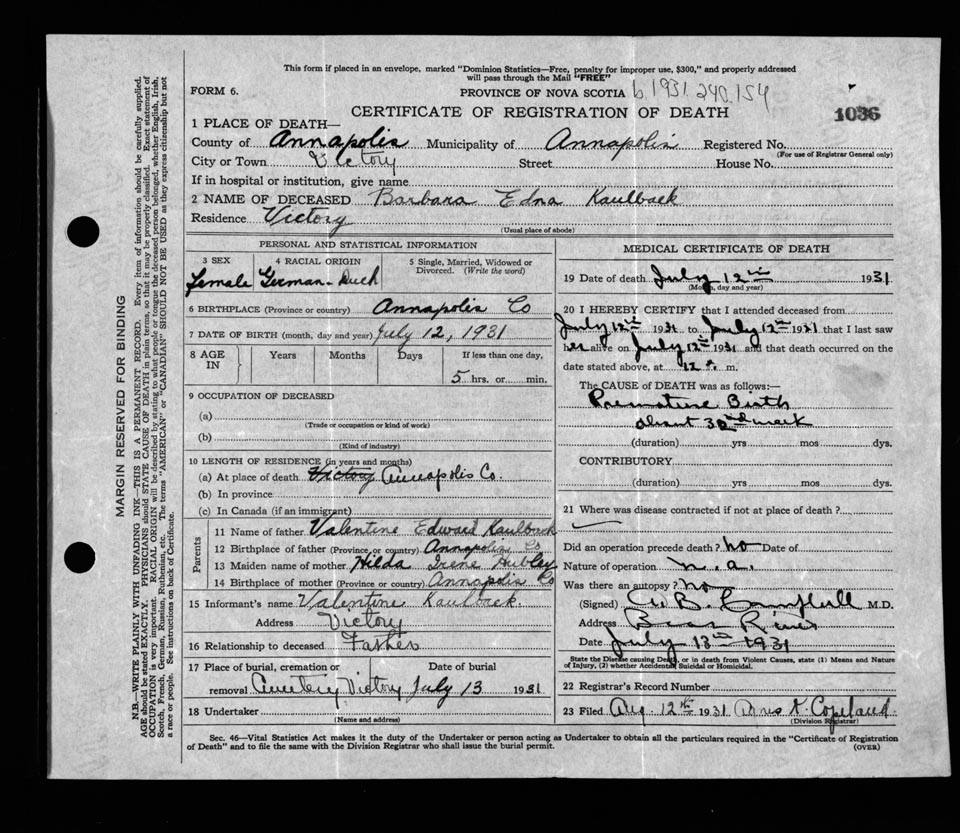 This form if placed in an envelope, marked "Dominion Statistics—Free, penalty for improper use, $300," and properly addressed
will pass through the Mail "FREE"
FORM 6.
PROVINCE OF NOVA SCOTIA b 1931.240.154
1036
CERTIFICATE OF REGISTRATION OF DEATH
1 PLACE OF DEATH—
County of Annapolis Municipality of Annapolis Registered No.
(For use of Registrar General only)
City or Town Victory Street House No.
If in hospital or institution, give name
2 NAME OF DECEASED Barbara Edna Kaulback
Residence Victory
(Usual place of abode)
PERSONAL AND STATISTICAL INFORMATION
3 SEX 4 RACIAL ORIGIN 5 Single, Married, Widowed or
Divorced. (Write the word)
Female German-Duch
6 BIRTHPLACE (Province or country) Annapolis Co
7 DATE OF BIRTH (month, day and year) July 12, 1931
8 AGE IN Years Months Days If less than one day,
5 hrs. or min.
9 OCCUPATION OF DECEASED
(a)
(Trade or occupation or kind of work)
(b)
(Kind of industry)
10 LENGTH OF RESIDENCE (in years and months)
(a) At place of death Victory Annapolis Co.
(b) In province
(c) In Canada (if an immigrant)
Parents
11 Name of father Valentine Edward Kaulback
12 Birthplace of father (Province or country) Annapolis Co
13 Maiden name of mother Hilda Irene Hubley
14 Birthplace of mother (Province or country) Annapolis Co
15 Informant's name Valentine Kaulback.
Address Victory
16 Relationship to deceased Father
17 Place of burial, cremation or Date of burial
removal Victory July 13 1931
18 Undertaker
(Name and address)
MEDICAL CERTIFICATE OF DEATH
19 Date of death July 12th 1931
(Month, day and year)
20 I HEREBY CERTIFY that I attended deceased from
July 12th 1931 to July 12th 1931 that I last saw
her alive on July 12th 1931 and that death occurred on the
date stated above, at 12 m.
The CAUSE OF DEATH was as follows:—
Premature Birth
about 32nd week
(duration) yrs mos dys.
CONTRIBUTORY
(duration) yrs mos dys.
21 Where was disease contracted if not at place of death?
Did an operation precede death? no Date of
Nature of operation n.a.
Was there an autopsy? no
(Signed) Campbell M.D.
Address Bear River
Date July 13th 1931
State the Disease causing Death, or in death from Violent Causes, state (1) Means and Nature
of Injury, (2) whether Accidental, Suicidal or Homicidal.
22 Registrar's Record Number
23 Filed Aug. 12th 1931 Copeland.
(Division Registrar)
Sec. 46—Vital Statistics Act makes it the duty of the Undertaker or person acting as Undertaker to obtain all the particulars required in the "Certificate of Registration
of Death" and to file the same with the Division Registrar who shall issue the burial permit.
(OVER)
MARGIN RESERVED FOR BINDING
N.B.—WRITE PLAINLY WITH UNFADING INK—THIS IS A PERMANENT RECORD. Every item of information should be carefully supplied.
AGE should be stated EXACTLY. PHYSICIANS should STATE CAUSE OF DEATH in plain terms, so that it may be properly classified. Exact statement of
OCCUPATION is very important. RACIAL ORIGIN will be described by stating to what people or tongue the deceased person belonged, whether English, Irish,
Scotch, French, German, Russian, Ruthenian, etc. The terms "AMERICAN" or "CANADIAN" SHOULD NOT BE USED as they express citizenship but not
a race or people. See instructions on back of Certificate.